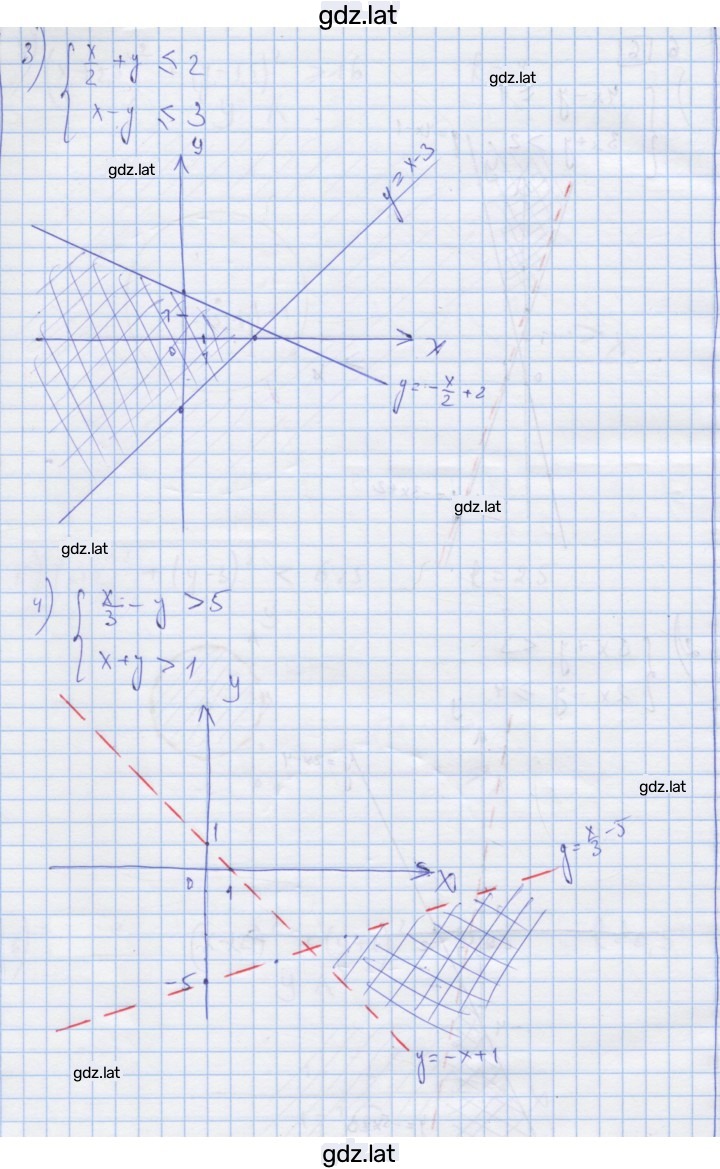 gdz.lat
3) { x/2 + y ≤ 2
gdz.lat
x - y ≤ 3
y
gdz.lat
y = x-3
1
0 1
x
y = -x/2 + 2
gdz.lat
gdz.lat
4) { x/3 - y > 5
x + y > 1
y
gdz.lat
1
y = x/3 - 5
0 1
x
-5
y = -x+1
gdz.lat
gdz.lat